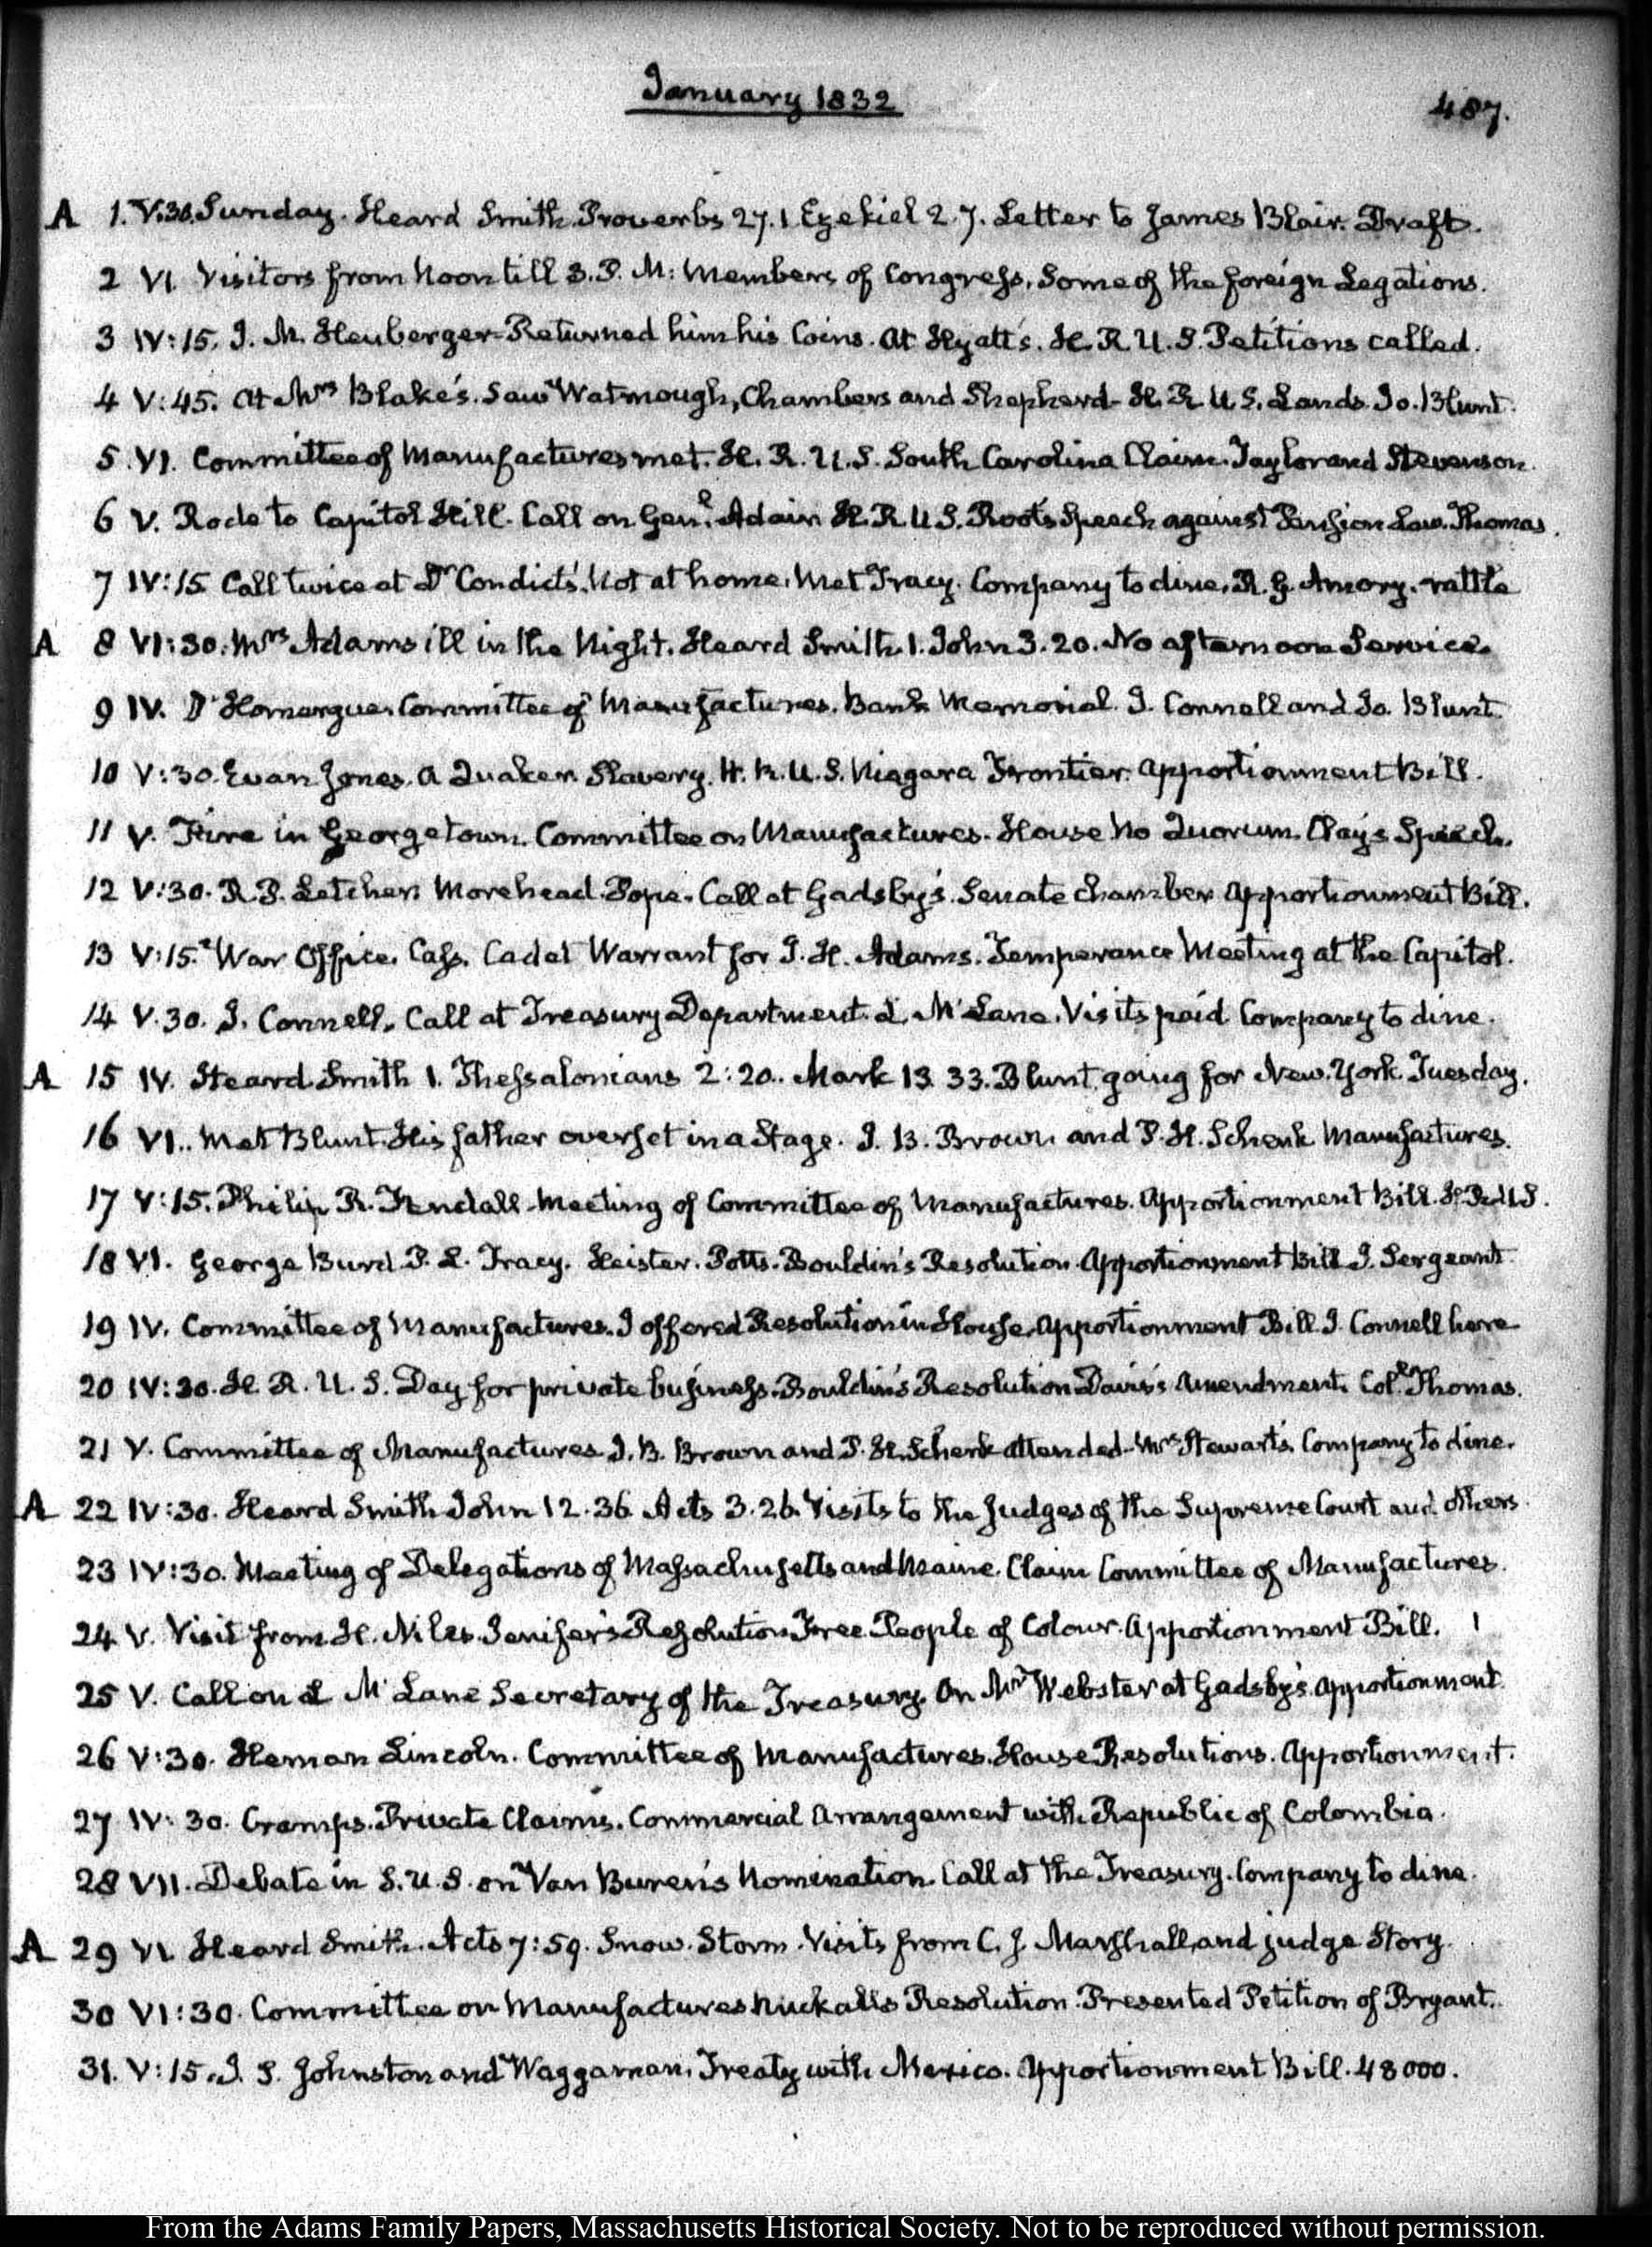 January 1832
487.
A 1. V:30. Sunday. Heard Smith. Proverbs 27.1 Ezekiel 2.7. Letter to James Blair. Draft.
2 VI. Visitors from Noon till 3. P. M: Members of Congress, Some of the foreign Legations.
3 IV:15. J. M. Heuberger Returned him his Coins. At Hyatt's. H. R. U. S. Petitions called.
4 V:45. At Mrs Blake's. Saw Watmough, Chambers and Shepherd. H. R. U. S. Lands. Jo. Blunt.
5 VI. Committee of Manufactures met. H. R. U. S. South Carolina Claim. Taylor and Stevenson.
6 V. Rode to Capitol Hill. Call on Genl. Adair H. R. U. S. Root's Speech against Pension Law. Thomas.
7 IV:15 Call twice at Dr Condict's. Not at home. Met Tracy. Company to dine. R. G. Amory. rattle
A 8 VI:30. Mrs Adams ill in the Night. Heard Smith. 1. John 3.20. No afternoon Service.
9 IV. D'Homergue. Committee of Manufactures. Bank Memorial. J. Connell and Jo. Blunt.
10 V:30. Evan Jones. A Quaker. Slavery. H. R. U. S. Niagara Frontier. Apportionment Bill.
11 V. Fire in Georgetown. Committee on Manufactures. House No Quorum. Clay's Speech.
12 V:30. R. P. Letcher. Morehead. Pope. Call at Gadsby's. Senate Chamber. Apportionment Bill.
13 V:15. War Office. Cass. Cadet Warrant for J. H. Adams. Temperance Meeting at the Capitol.
14 V.30. J. Connell. Call at Treasury Department. L. McLane. Visits paid. Company to dine.
A 15 IV. Heard Smith 1. Thessalonians 2:20. Mark 13.33. Blunt going for New-York. Tuesday.
16 VI. Met Blunt. His father overset in a Stage. J. B. Brown and P. H. Schenk Manufactures.
17 V:15. Philip R. Fendall. Meeting of Committee of Manufactures. Apportionment Bill. H. R. U S.
18 VI. George Burd. P. L. Tracy. Heister. Potts. Bouldin's Resolution. Apportionment Bill. J. Sergeant.
19 IV. Committee of Manufactures. I offered Resolution in House. Apportionment Bill. J. Connell here
20 IV:30. H. R. U. S. Day for private business. Bouldin's Resolution Davis's Amendment. Coll. Thomas.
21 V. Committee of Manufactures. J. B. Brown and P. H. Schenk attended. Mrs Stewart's. Company to dine.
A 22 IV:30. Heard Smith John 12.36. Acts 3.26. Visits to the Judges of the Supreme Court and others.
23 IV:30. Meeting of Delegations of Massachusetts and Maine. Claim Committee of Manufactures.
24 V. Visit from H. Niles. Jenifer's Resolution Free People of Colour. Apportionment Bill.
25 V. Call on L McLane Secretary of the Treasury. On Mr Webster at Gadsby's. Apportionment.
26 V:30. Heman Lincoln. Committee of Manufactures. House Resolutions. Apportionment.
27 IV:30. Cramps. Private Claims. Commercial Arrangement with Republic of Colombia.
28 VII. Debate in S. U. S. on Van Buren's Nomination. Call at the Treasury. Company to dine.
A 29 VI. Heard Smith. Acts 7:59. Snow. Storm. Visits from C. J. Marshall, and judge Story.
30 VI:30. Committee on Manufactures Nuckalls Resolution. Presented Petition of Bryant.
31. V:15. J. S. Johnston and Waggaman. Treaty with Mexico. Apportionment Bill. 48000.
From the Adams Family Papers, Massachusetts Historical Society. Not to be reproduced without permission.